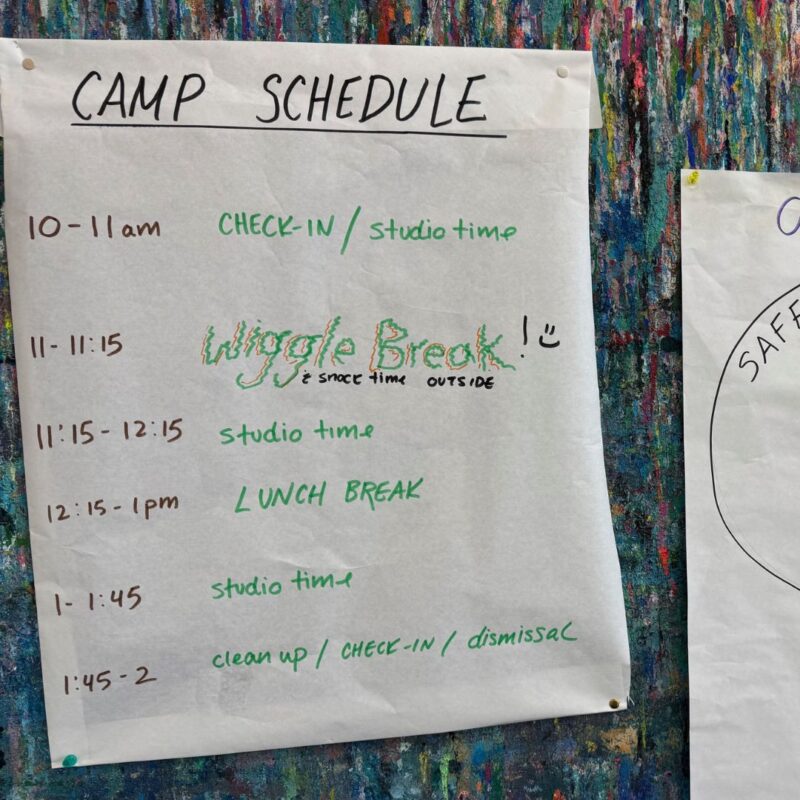 CAMP SCHEDULE
10-11am CHECK-IN / studio time
11-11:15 Wiggle Break! :)
& snack time OUTSIDE
11:15-12:15 studio time
12:15-1pm LUNCH BREAK
1-1:45 studio time
1:45-2 clean up / CHECK-IN / dismissal
SAFE